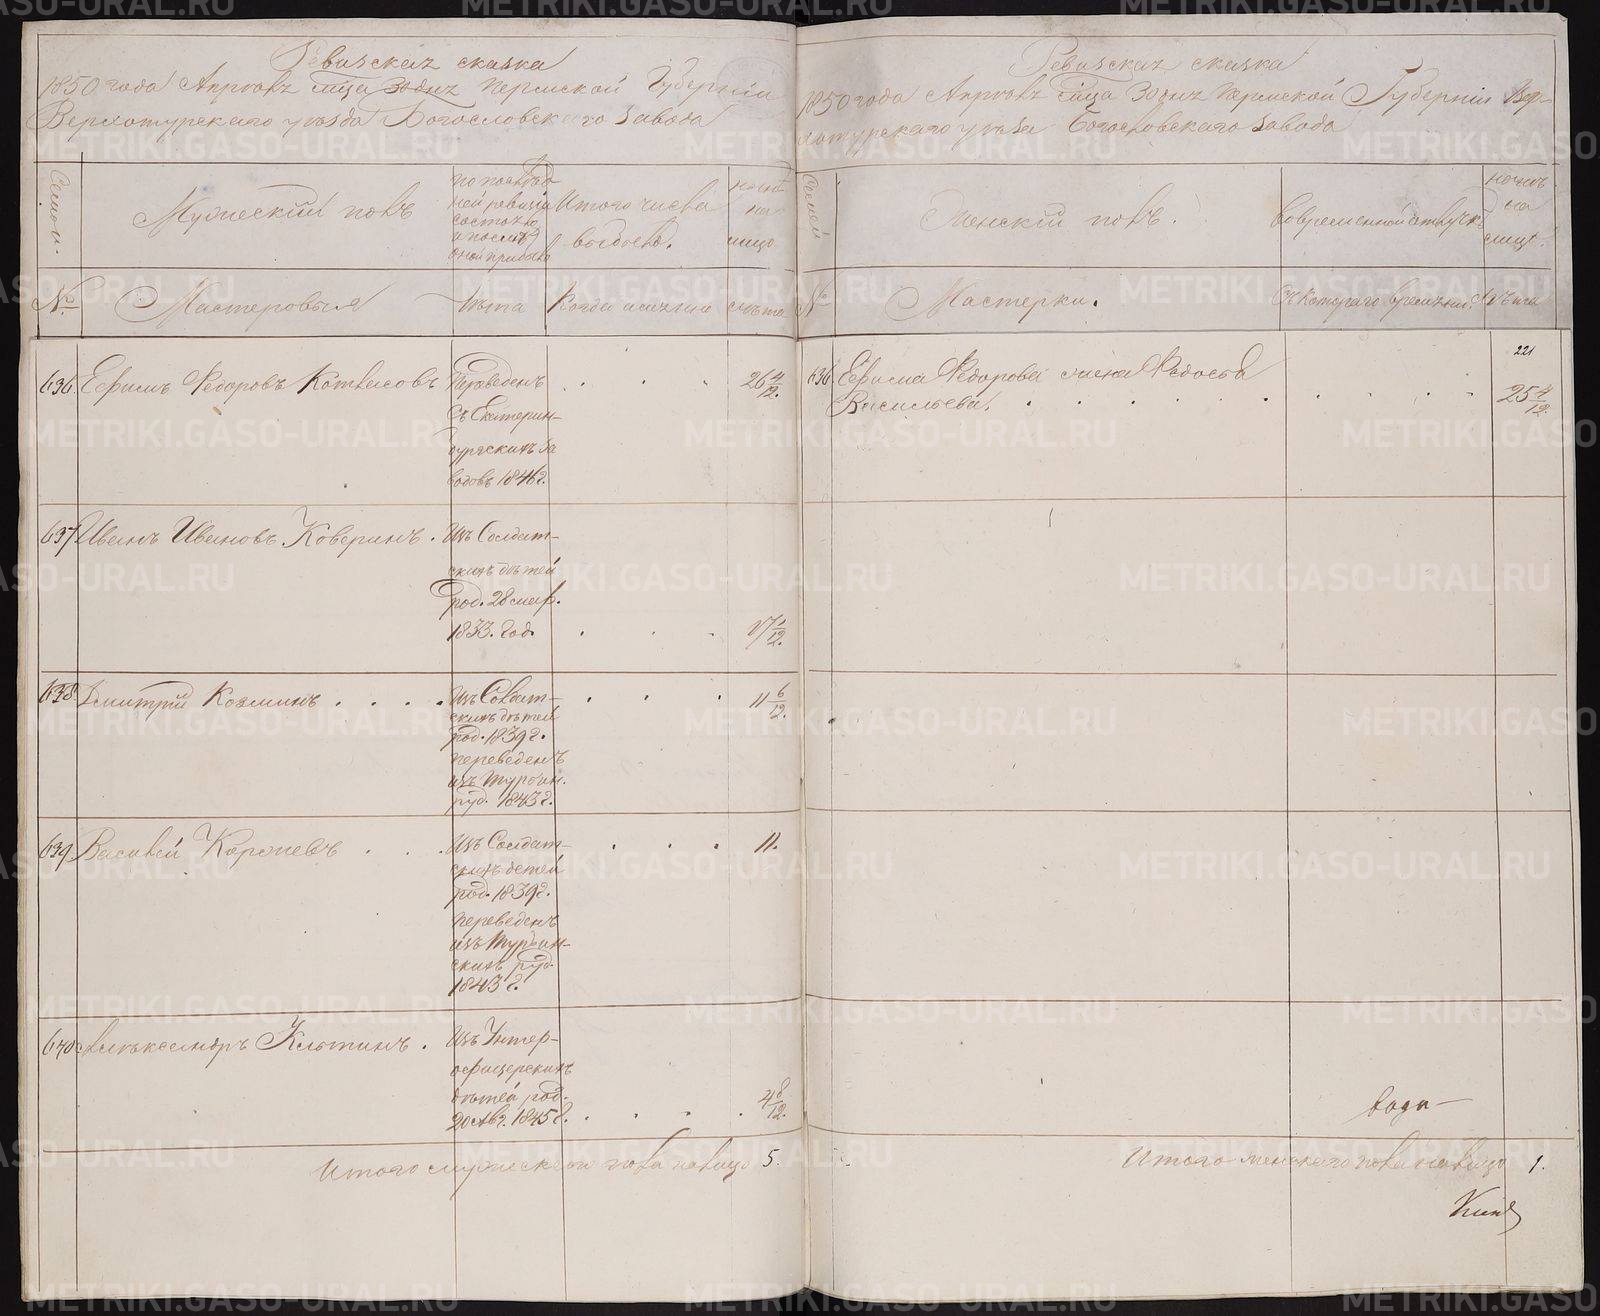 Ревизская сказка
1850 года Апреля м-ца 30 дня Пермской Губернiи
Верхотурскаго уѣзда Богословскаго завода
Семьи.
Мужескiй полъ
по послѣд-
ней ревизiи
состояло
и послѣ
оной прибыло
Итого числа
выбыло.
нынѣ
на
лицо
№
Мастеровыя
Лѣта
Когда именно
Лѣта
636.
Ефимъ Федоровъ
Переведенъ
съ Екатерин-
бургскихъ за
водовъ 1846 г.
26 4/12.
637
Иванъ Ивановъ Каверинъ.
Изъ Солдат-
скихъ дѣтей
род. 28 мар.
1833. год.
17 1/12.
638.
Дмитрiй Козминъ
Изъ Солдат-
скихъ дѣтей
род. 1839 г.
переведенъ
изъ Турьин.
руд. 1843 г.
11 6/12.
639
Василiй
Изъ Солдат-
скихъ детей
род. 1839 г.
переведенъ
изъ Турьин-
скихъ руд.
1843 г.
11.
640
Александръ
Изъ Унтер-
офицерскихъ
дѣтей род.
20 Авг. 1845 г.
4 8/12.
Итого мужескаго пола на лицо 5.
Ревизская сказка
1850 года Апреля м-ца 30 дня Пермской Губернiи Вер-
хотурскаго уѣзда Богословскаго завода
Семьи
Женскiй полъ.
Во временной отлучкѣ
нынѣ
на
лицо.
№
Мастерки.
Съ котораго времени
Лѣта
221
636.
Ефима Федорова жена Федосья
Васильева.
25 4/12.
Итого женскаго пола на лицо 1.
METRIKI.GASO-URAL.RU